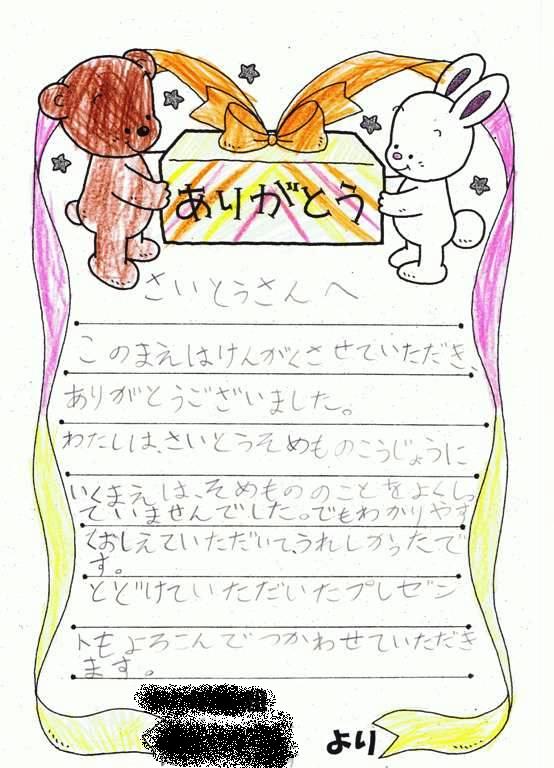 ありがとう
さいとうさんへ
このまえはけんがくさせていただき、
ありがとうございました。
わたしは、さいとうそめものこうじょうに
いくまえは、そめもののことをよくしっ
ていませんでした。でもわかりやす
くおしえていただいて、うれしかったで
す。
とどけていただいたプレゼン
トもよろこんでつかわせていただき
ます。
より